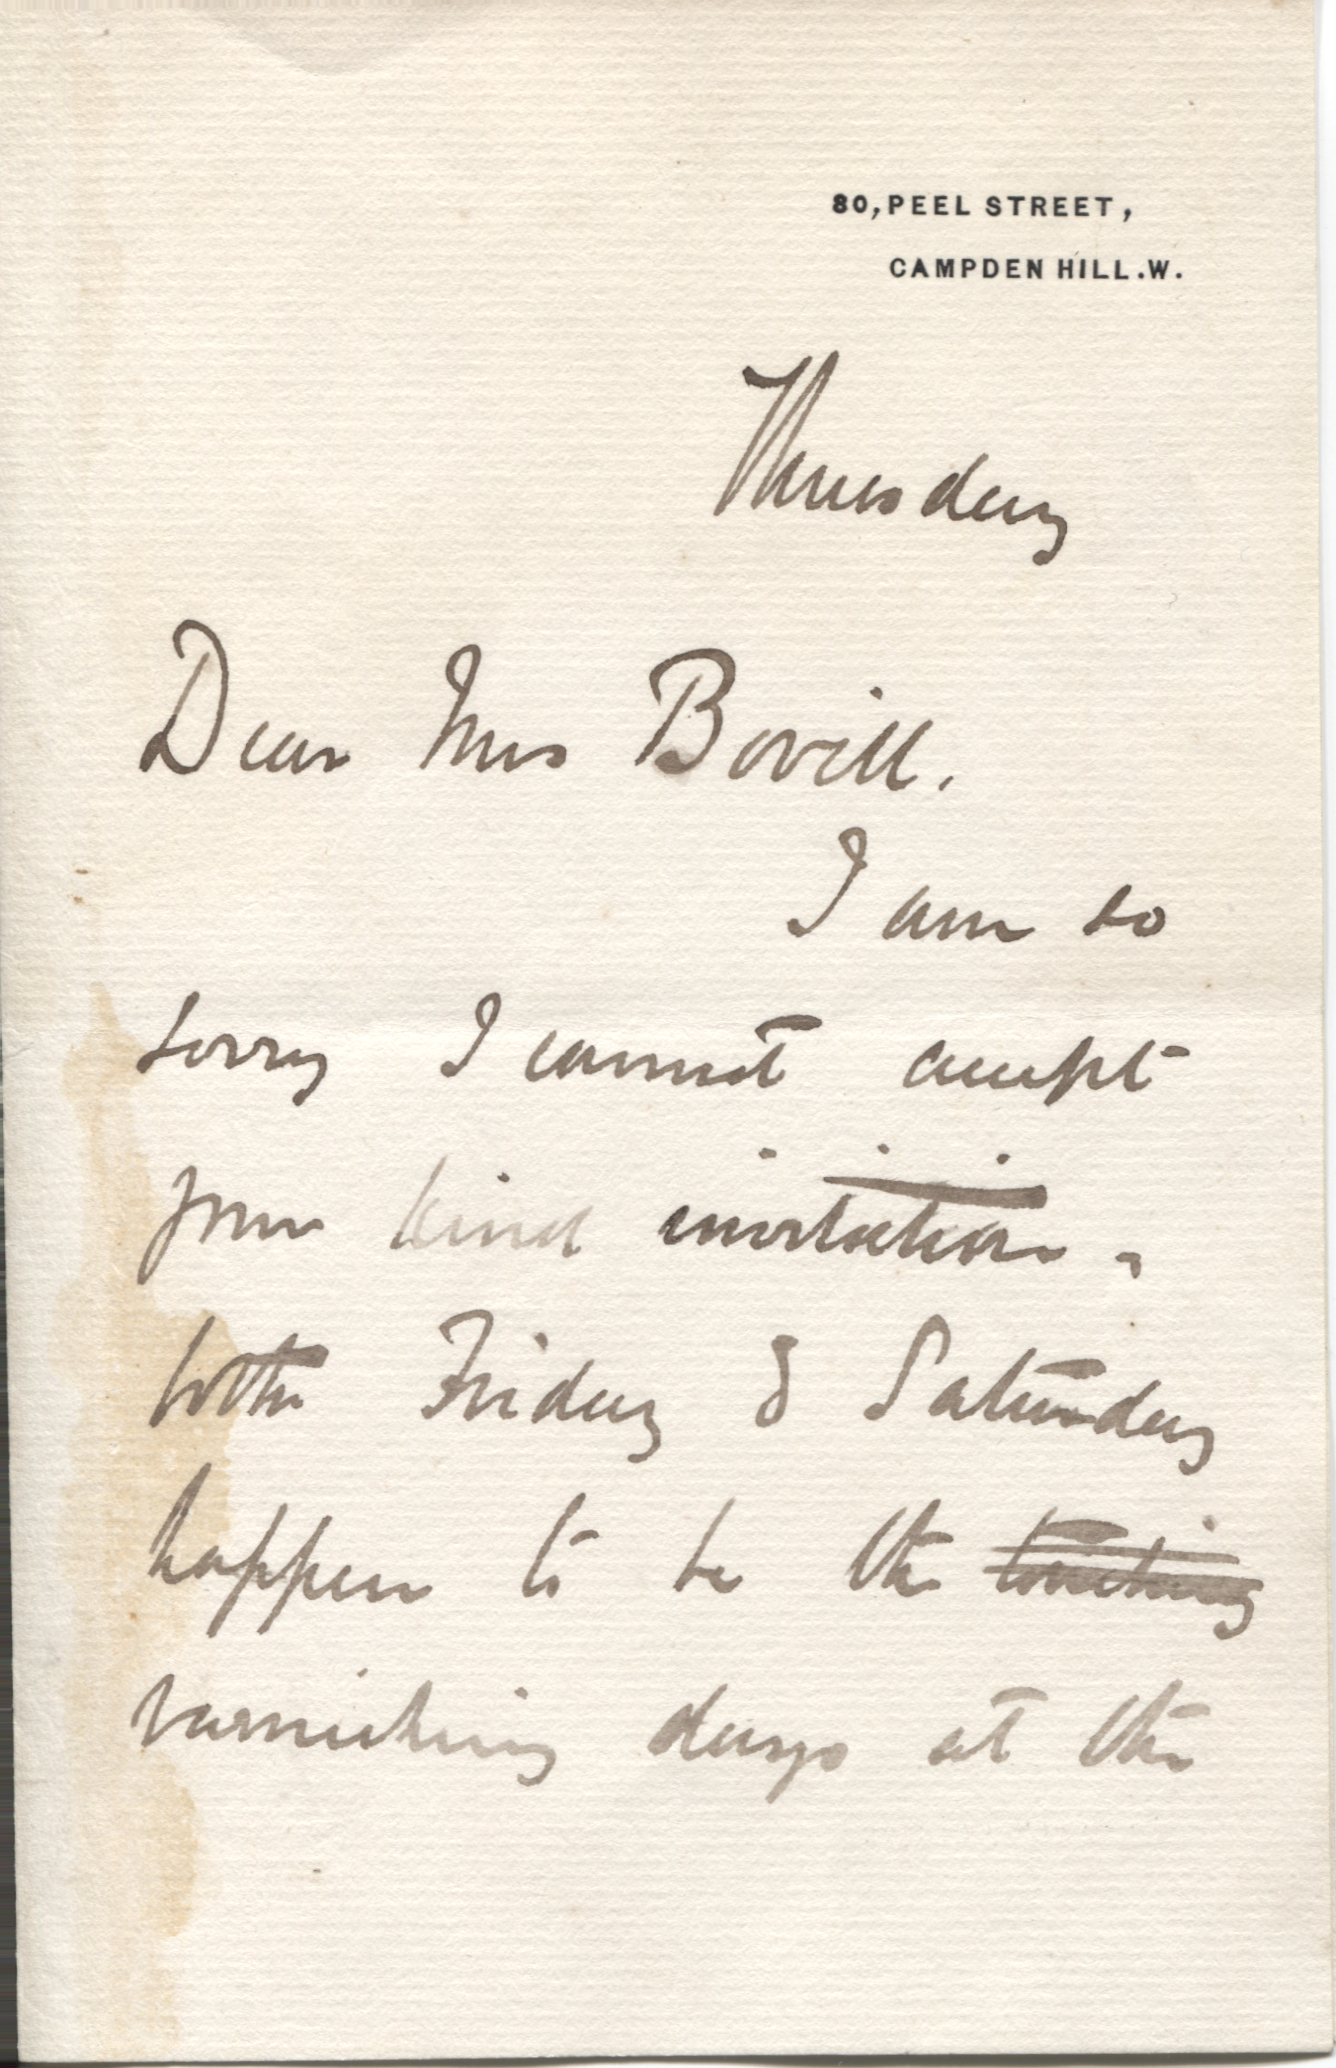 80, PEEL STREET,
CAMPDEN HILL. W.
Thursday
Dear Mrs Bovill.
I am so
sorry I cannot accept
your kind invitation,
both Friday & Saturday
happen to be the touching
varnishing days at the